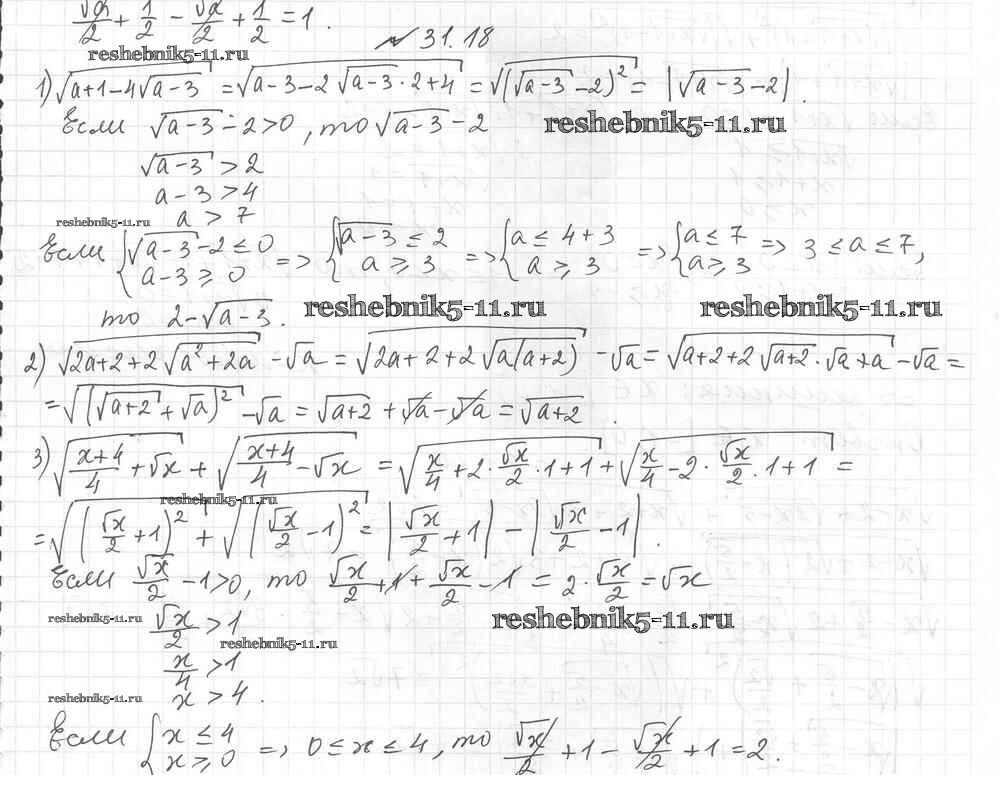 √x/2 + 1/2 - √x/2 + 1/2 = 1.
reshebnik5-11.ru
№ 31.18
1) √(a+1-4√(a-3)) = √(a-3-2√(a-3)·2+4) = √((√(a-3)-2)²) = |√(a-3)-2|.
Если √(a-3)-2>0, то √(a-3)-2
reshebnik5-11.ru
√(a-3) > 2
a-3 > 4
reshebnik5-11.ru
a > 7
Если {√(a-3)-2 ≤ 0; a-3 ≥ 0 => {√(a-3) ≤ 2; a ≥ 3 => {a ≤ 4+3; a ≥ 3 => {a ≤ 7; a ≥ 3 => 3 ≤ a ≤ 7,
то 2-√(a-3).
reshebnik5-11.ru
reshebnik5-11.ru
2) √(2a+2+2√(a²+2a)) - √a = √(2a+2+2√(a(a+2))) - √a = √(a+2+2√(a+2)·√a+a) - √a =
= √((√(a+2)+√a)²) - √a = √(a+2) + √a - √a = √(a+2).
3) √((x+4)/4 + √x) + √((x+4)/4 - √x) = √(x/4 + 2·√x/2·1+1) + √(x/4 - 2·√x/2·1+1) =
reshebnik5-11.ru
= √((√x/2+1)²) + √((√x/2-1)²) = |√x/2+1| - |√x/2-1|.
Если √x/2 - 1>0, то √x/2 + 1 + √x/2 - 1 = 2·√x/2 = √x
reshebnik5-11.ru
√x/2 > 1
reshebnik5-11.ru
reshebnik5-11.ru
x/4 > 1
reshebnik5-11.ru
x > 4.
Если {x ≤ 4; x ≥ 0 =>, 0 ≤ x ≤ 4, то √x/2 + 1 - √x/2 + 1 = 2.